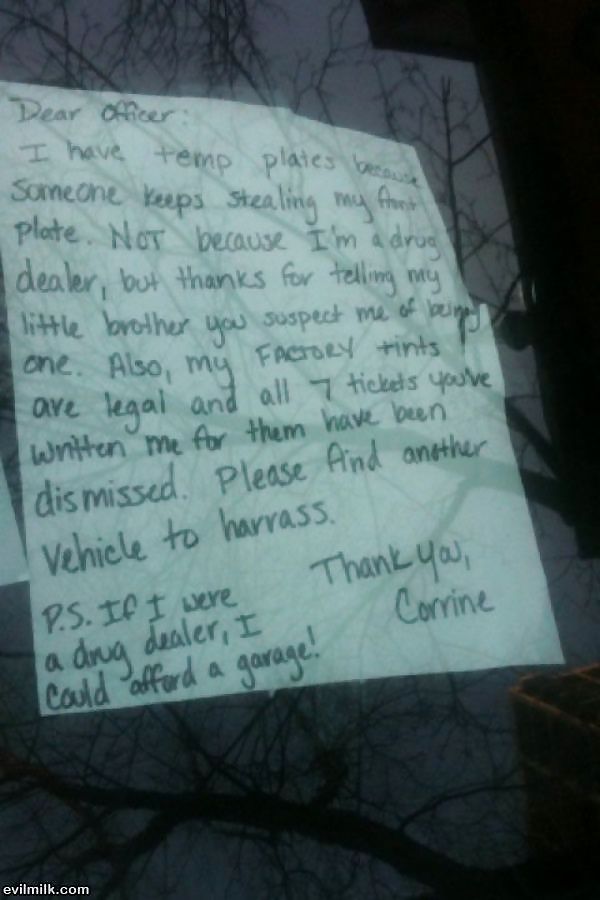 Dear Officer:
I have temp plates because
someone keeps stealing my front
plate. NOT because I'm a drug
dealer, but thanks for telling my
little brother you suspect me of being
one. Also, my FACTORY tints
are legal and all 7 tickets you've
written me for them have been
dismissed. Please find another
vehicle to harrass.
Thank You,
Corrine
P.S. If I were
a drug dealer, I
could afford a garage!
evilmilk.com